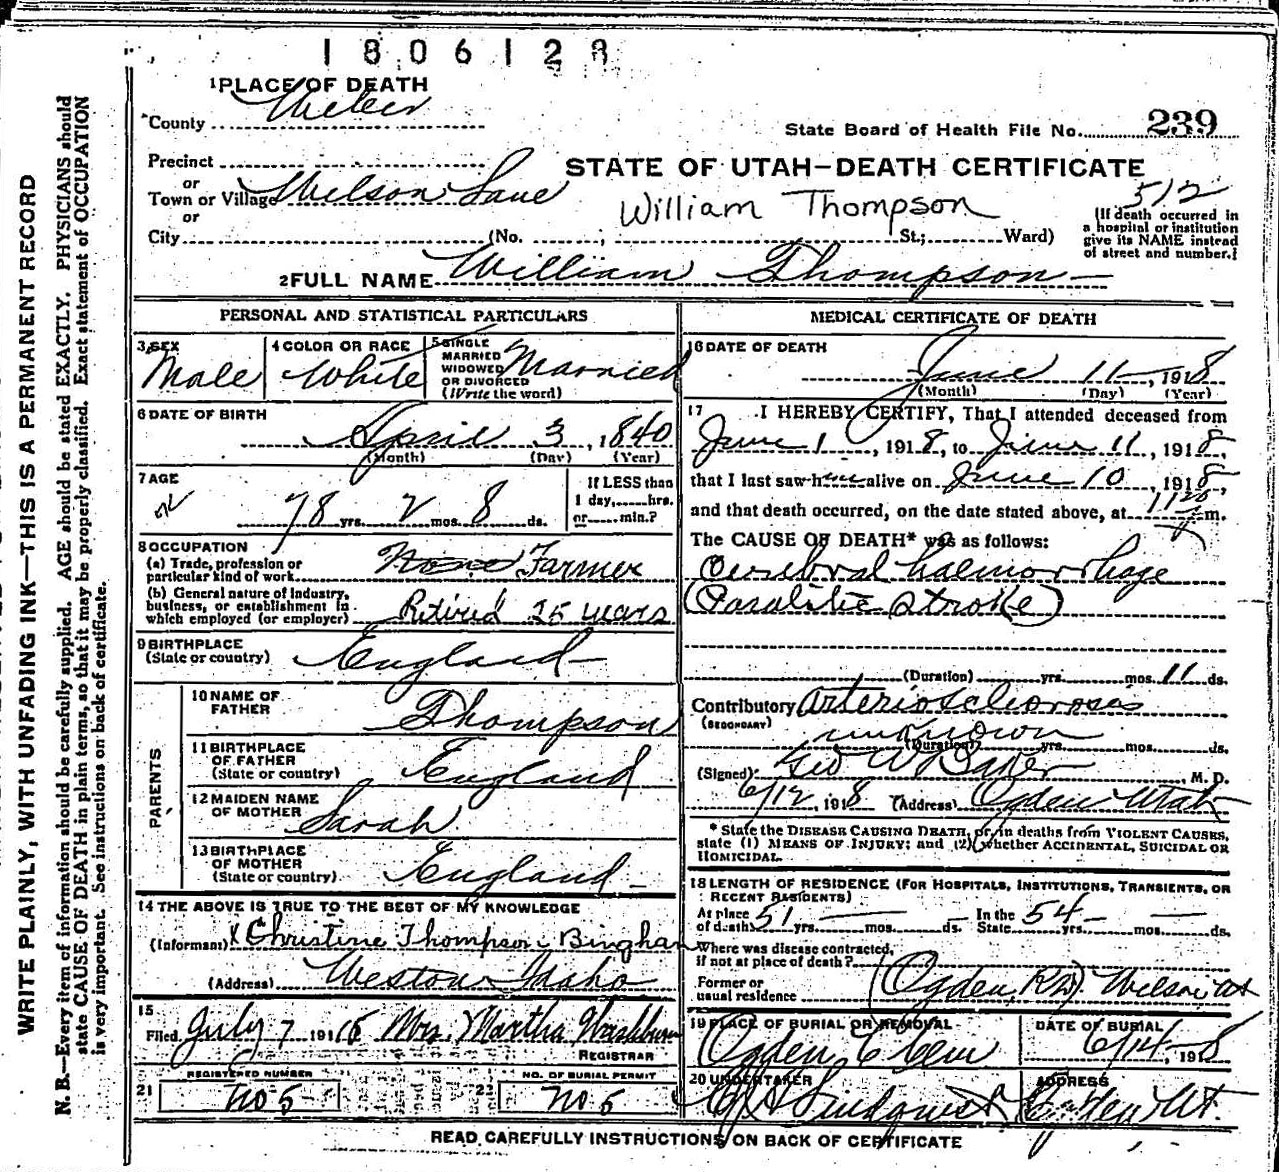 1806128
1 PLACE OF DEATH
County Weber
State Board of Health File No. 239
Precinct
or
Town or Village Wilson Lane
or
STATE OF UTAH—DEATH CERTIFICATE
William Thompson
512
City (No. ; St.; Ward)
(If death occurred in
a hospital or institution
give its NAME instead
of street and number.)
2 FULL NAME William Thompson
PERSONAL AND STATISTICAL PARTICULARS
3 SEX
Male
4 COLOR OR RACE
White
5 SINGLE
MARRIED
WIDOWED
OR DIVORCED
(Write the word)
Married
6 DATE OF BIRTH
April 3, 1840
(Month) (Day) (Year)
7 AGE
78 yrs. 2 mos. 8 ds.
If LESS than
1 day, hrs.
or min.?
8 OCCUPATION
(a) Trade, profession or
particular kind of work None Farmer
(b) General nature of industry,
business, or establishment in
which employed (or employer) Retired 25 years
9 BIRTHPLACE
(State or country) England
PARENTS
10 NAME OF
FATHER Thompson
11 BIRTHPLACE
OF FATHER
(State or country) England
12 MAIDEN NAME
OF MOTHER Sarah
13 BIRTHPLACE
OF MOTHER
(State or country) England
14 THE ABOVE IS TRUE TO THE BEST OF MY KNOWLEDGE
(Informant) X Christine Thompson Bingham
(Address) Weston Idaho
15
Filed July 7 191 Mrs. Martha Washburn
REGISTRAR
21 REGISTERED NUMBER
No 5
22 NO. OF BURIAL PERMIT
No 5
MEDICAL CERTIFICATE OF DEATH
16 DATE OF DEATH
June 11, 1918
(Month) (Day) (Year)
17 I HEREBY CERTIFY, That I attended deceased from
June 1, 1918, to June 11, 1918,
that I last saw him alive on June 10, 1918,
and that death occurred, on the date stated above, at 11 m.
The CAUSE OF DEATH* was as follows:
Cerebral haemorrhage
(Paralitic Stroke)
(Duration) yrs. mos. 11 ds.
Contributory Arteriosclerosis
(SECONDARY)
unknown
(Duration) yrs. mos. ds.
(Signed) Geo W Baker, M. D.
6/12, 1918 (Address) Ogden Utah
* State the DISEASE CAUSING DEATH, or, in deaths from VIOLENT CAUSES,
state (1) MEANS OF INJURY; and (2) whether ACCIDENTAL, SUICIDAL OR
HOMICIDAL.
18 LENGTH OF RESIDENCE (FOR HOSPITALS, INSTITUTIONS, TRANSIENTS, OR
RECENT RESIDENTS)
At place
of death 51 yrs. mos. ds.
In the
State 54 yrs. mos. ds.
Where was disease contracted,
if not at place of death?
Former or
usual residence (Ogden, RD) Wilson Ut
19 PLACE OF BURIAL OR REMOVAL
Ogden C Cem
DATE OF BURIAL
6/14, 1918
20 UNDERTAKER
Lindquist
ADDRESS
Ogden Ut.
READ CAREFULLY INSTRUCTIONS ON BACK OF CERTIFICATE
WRITE PLAINLY, WITH UNFADING INK—THIS IS A PERMANENT RECORD
N. B.—Every item of information should be carefully supplied. AGE should be stated EXACTLY. PHYSICIANS should
state CAUSE OF DEATH in plain terms, so that it may be properly classified. Exact statement of OCCUPATION
is very important. See instructions on back of certificate.